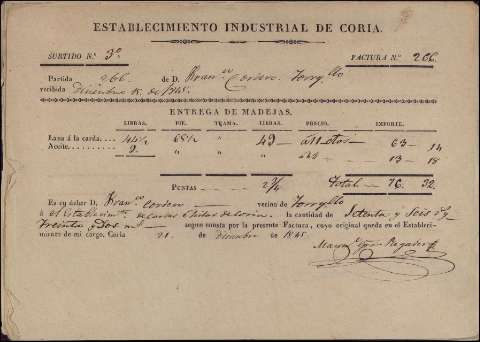 ESTABLECIMIENTO INDUSTRIAL DE CORIA.
SURTIDO N.º 3º FACTURA N.º 266
Partida 266 de D. Fran.co Cordero. Torrjllo
recibida Diciembre 15. de 1845.
ENTREGA DE MADEJAS.
LIBRAS. PIE. TRAMA. LIBRAS. PRECIO. IMPORTE.
Lana á la carda. 44½ 68½ " 49 63 14
Aceite. 9. " " 13 18
PUNTAS 2¾ Total 76. 32
Es en deber D. Fran.co Cordero vecino de Torrjllo
á el Establecim.to la cantidad de Setenta y Seis
Treinta y Dos segun consta por la presente Factura, cuyo original queda en el Estableci-
miento de mi cargo. Coria 21. de Diciembre de 1845